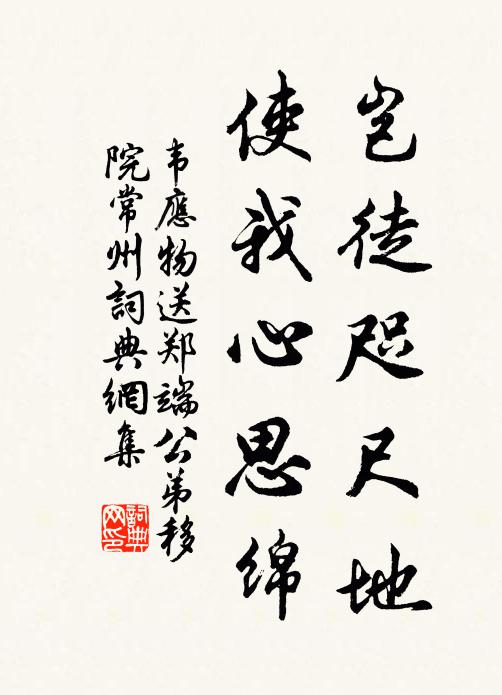 岂徒咫尺地
使我心思绵
韦應物送郑端公弟移
院常州詞典網集
詞典
网印